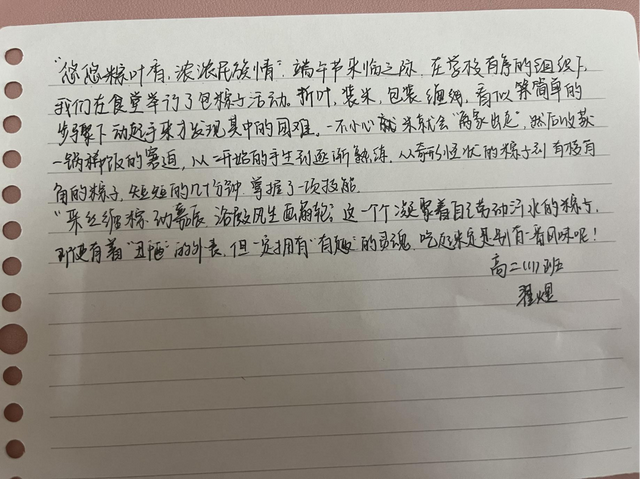 “悠悠粽叶香，浓浓民族情”，端午节来临之际，在学校有序的组织下，
我们在食堂举行了包粽子活动。折叶，装米，包装，缠绳，看似简单的
步骤下动起手来才发现其中的困难。一不小心就米就会“离家出走”，然后收获
一锅稀饭的窘迫，从一开始的手生到逐渐熟练，从奇形怪状的粽子到有棱有
角的粽子，短短的几十分钟掌握了一项技能。
“采丝缠粽动嘉辰 浴殿风生画扇轮”这一个个凝聚着自己劳动汗水的粽子，
即便有着“丑陋”的外表，但一定拥有“有趣”的灵魂，吃起来定是别有一番风味呢！
高二（11）班
翟煜